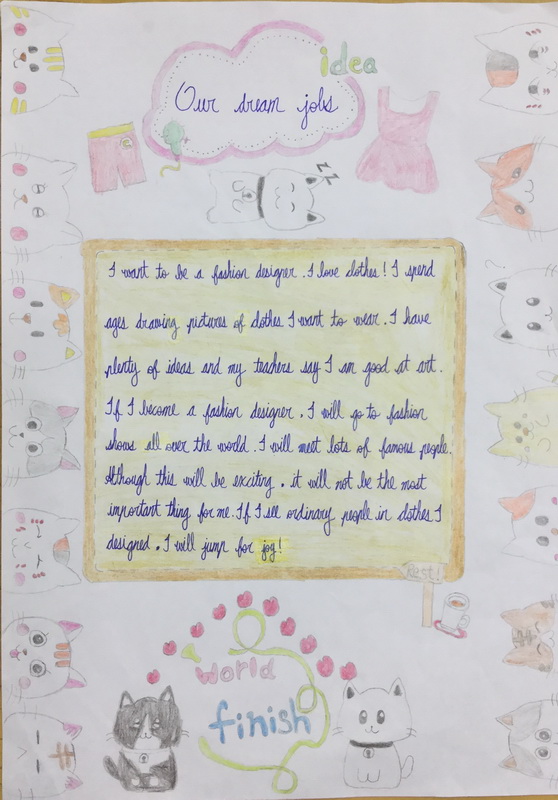 idea
Our dream jobs
zz
I want to be a fashion designer. I love clothes! I spend
ages drawing pictures of clothes I want to wear. I have
plenty of ideas and my teachers say I am good at art.
If I become a fashion designer. I will go to fashion
shows all over the world. I will meet lots of famous people.
Although this will be exciting. it will not be the most
important thing for me. If I see ordinary people in clothes I
designed. I will jump for joy!
Rest!
?
world
finish